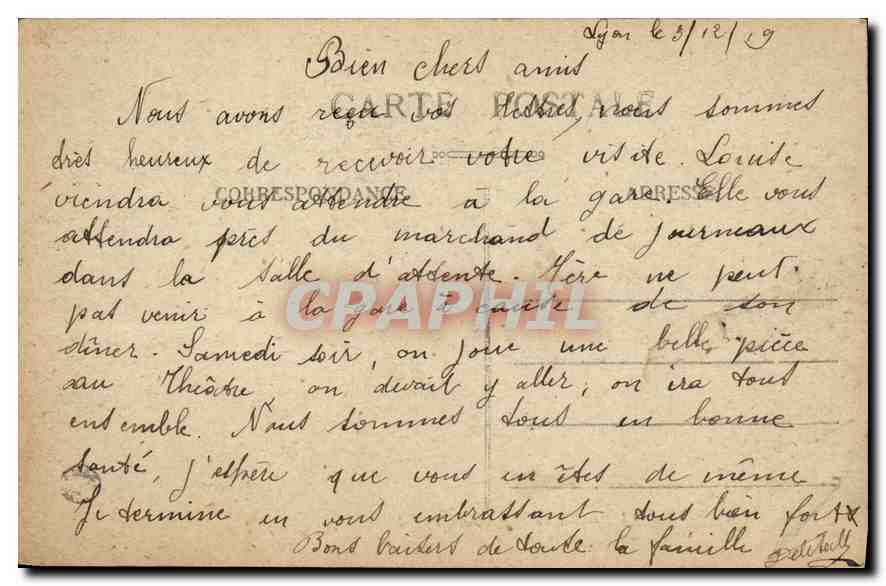 Lyon le 3/12/19
Bien chers amis
CARTE POSTALE
Nous avons reçu vos lettres, nous sommes
très heureux de recevoir votre visite. Louise
CORRESPONDANCE
ADRESSE
viendra vous attendre à la gare. Elle vous
attendra près du marchand de journeaux
dans la salle d'attente. Mère ne peut
pas venir à la gare à cause de son
CPAPHIL
dîner. Samedi soir, on joue une belle pièce
au Théâtre on devait y aller, on ira tous
ensemble. Nous sommes tous en bonne
santé, j'espère que vous en êtes de même
Je termine en vous embrassant tous bien fort
Bons baisers de toute la famille